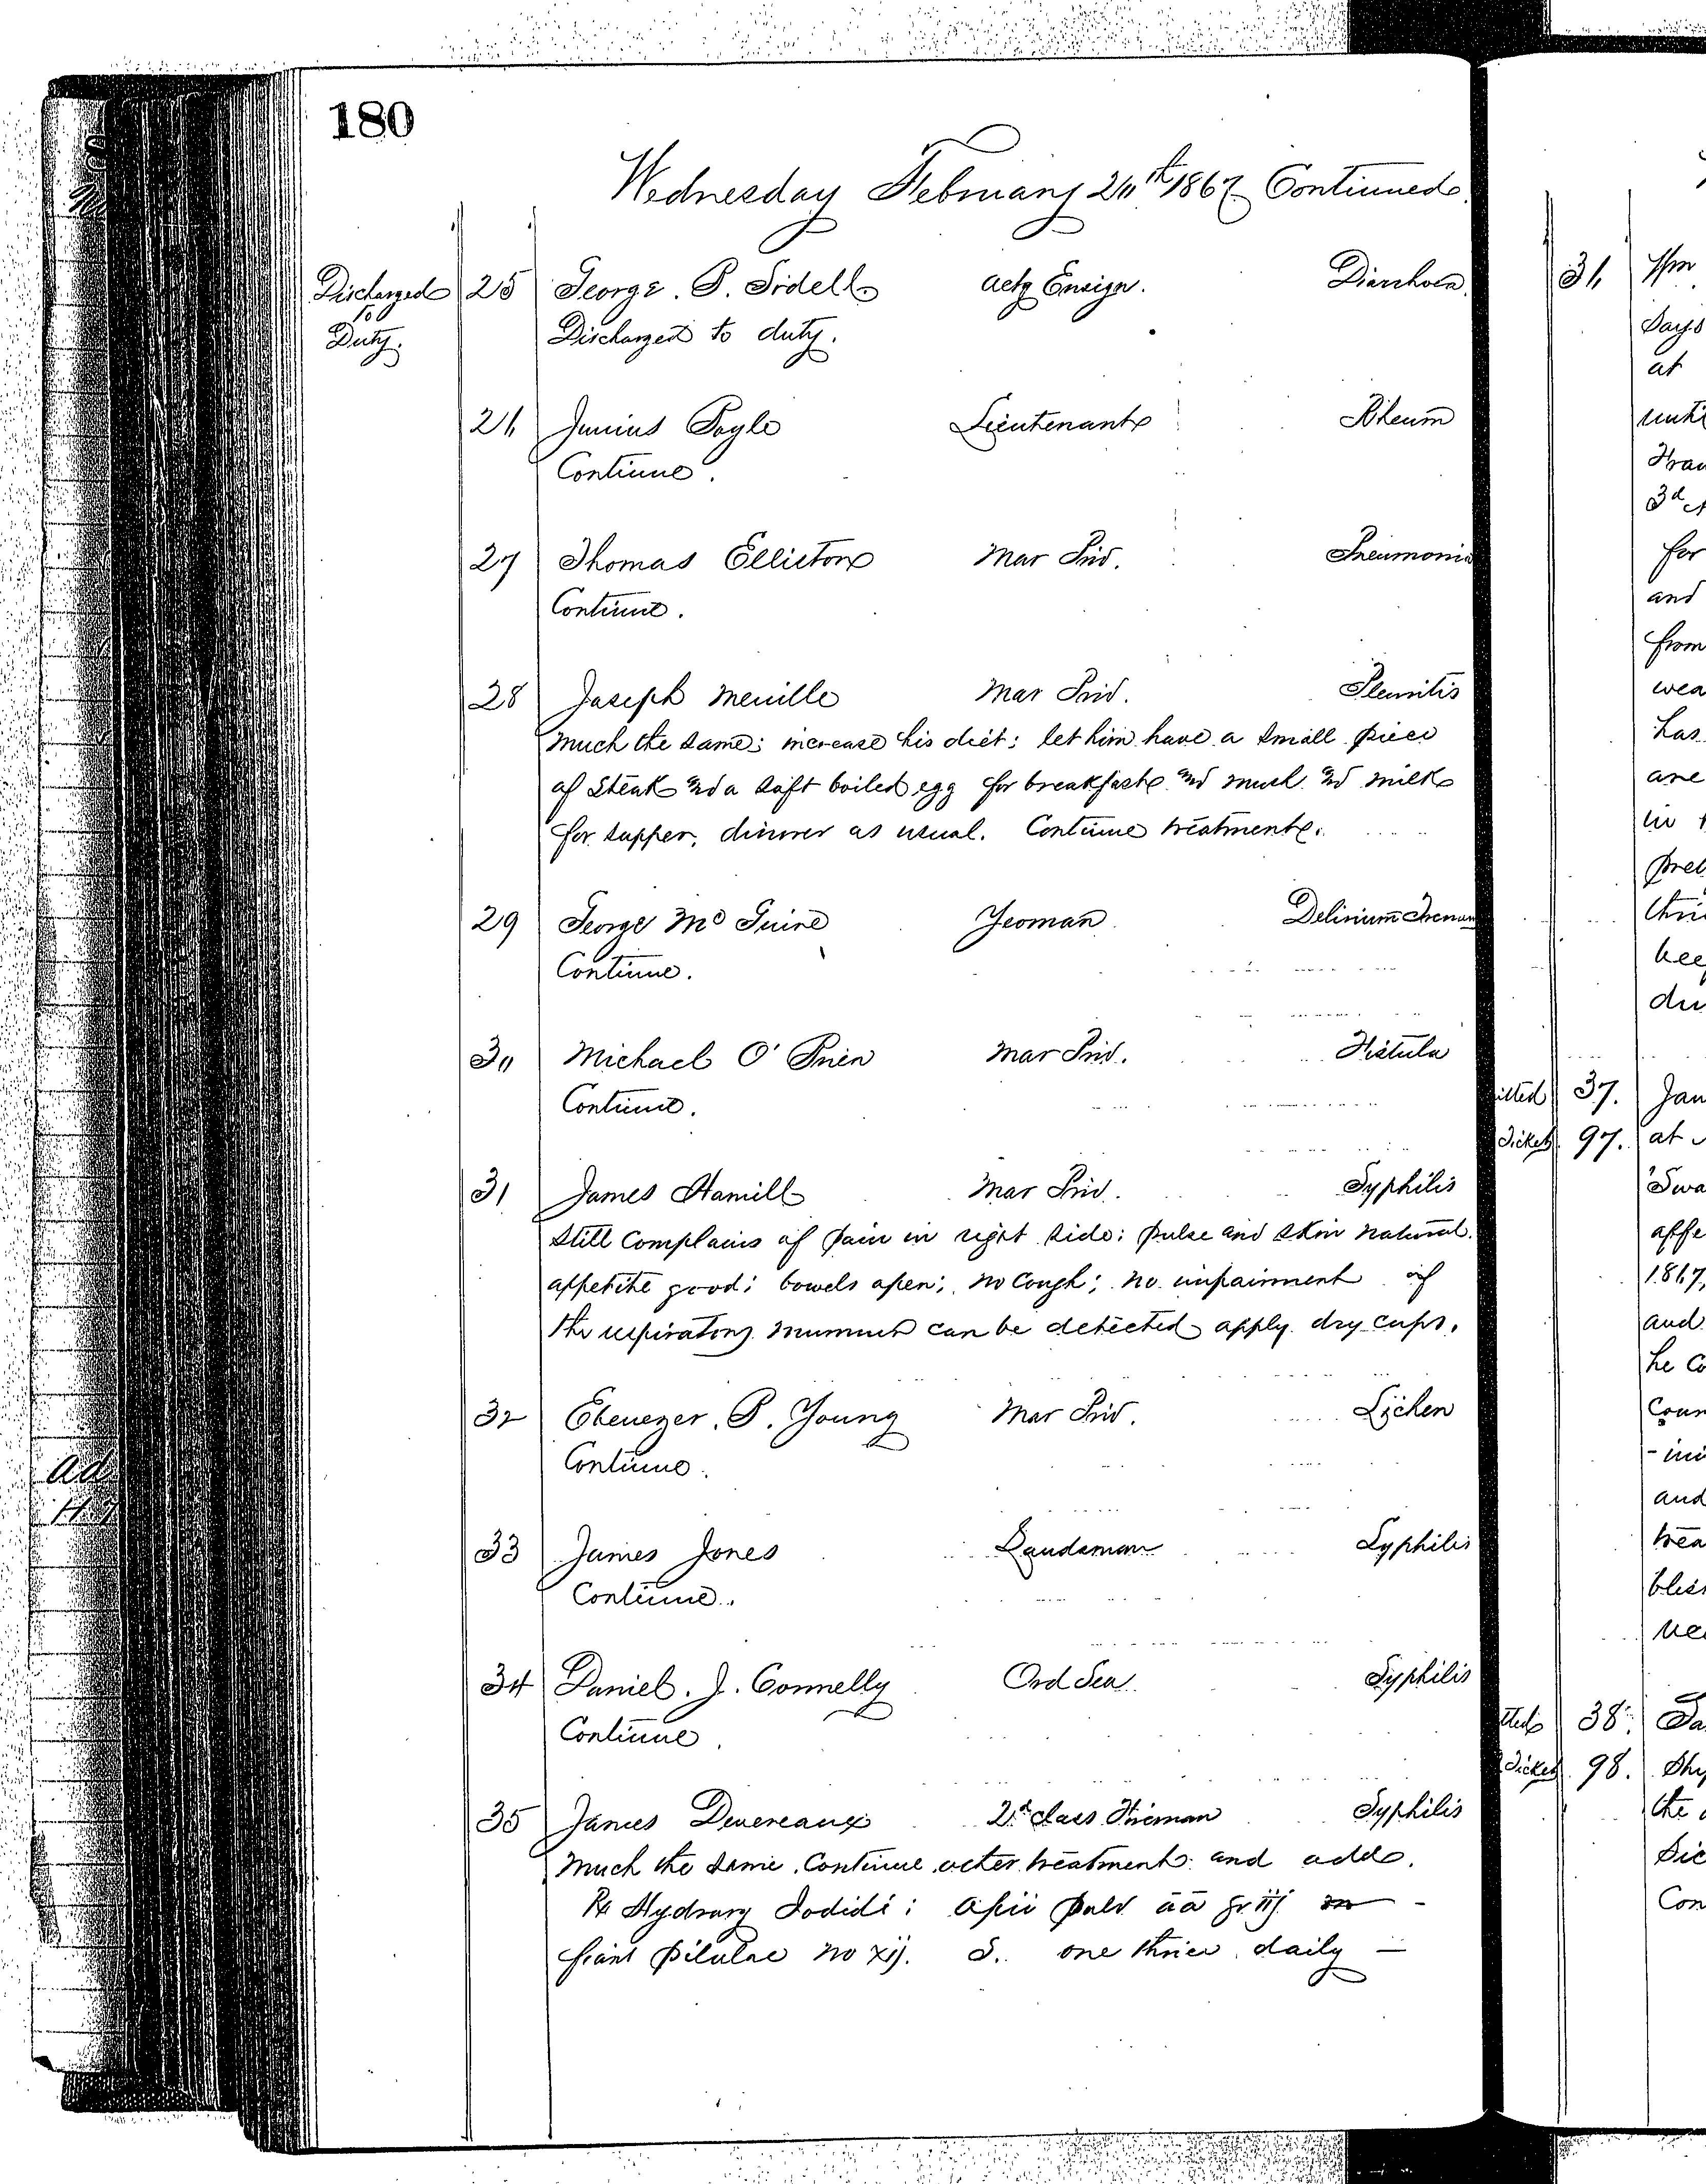 180
Wednesday February 20th 1867 Continued.
Discharged to Duty.
25 George. P. Sidell actg Ensign. Diarrhoea.
Discharged to duty.
26 Junius Fogle Lieutenant Rheum
Continue.
27 Thomas Ellicton Mar Priv. Pneumonia
Continue.
28 Joseph Menille Mar Priv. Pleuritis
Much the same; increase his diet; let him have a small piece
of steak and a soft boiled egg for breakfast and mush and milk
for supper, dinner as usual. Continue treatment.
29 George McGuire Yeoman Delirium Tremens
Continue.
30 Michael O'Brien Mar Priv. Fistula
Continue.
31 James Hamill Mar Priv. Syphilis
Still complains of pain in right side; pulse and skin natural.
appetite good; bowels open; no cough; no impairment of
the respiratory murmur can be detected apply dry cups.
32 Ebenezer. P. Young Mar Priv. Lichen
Continue.
33 James Jones Landsman Syphilis
Continue.
34 Daniel. J. Connelly Ord Sea. Syphilis
Continue.
35 James Devereaux 2d class Fireman Syphilis
Much the same. Continue other treatment and add.
Rx Hydrarg Iodidi; Opii pulv āā gr iij
fiant pilulae no xij. S. one thrice daily —
36
Days
at
until
3d
for
and
from
has
are
in
37. Jan
Ticket 97. at
1867,
and
he
and
38.
Ticket 98.
the